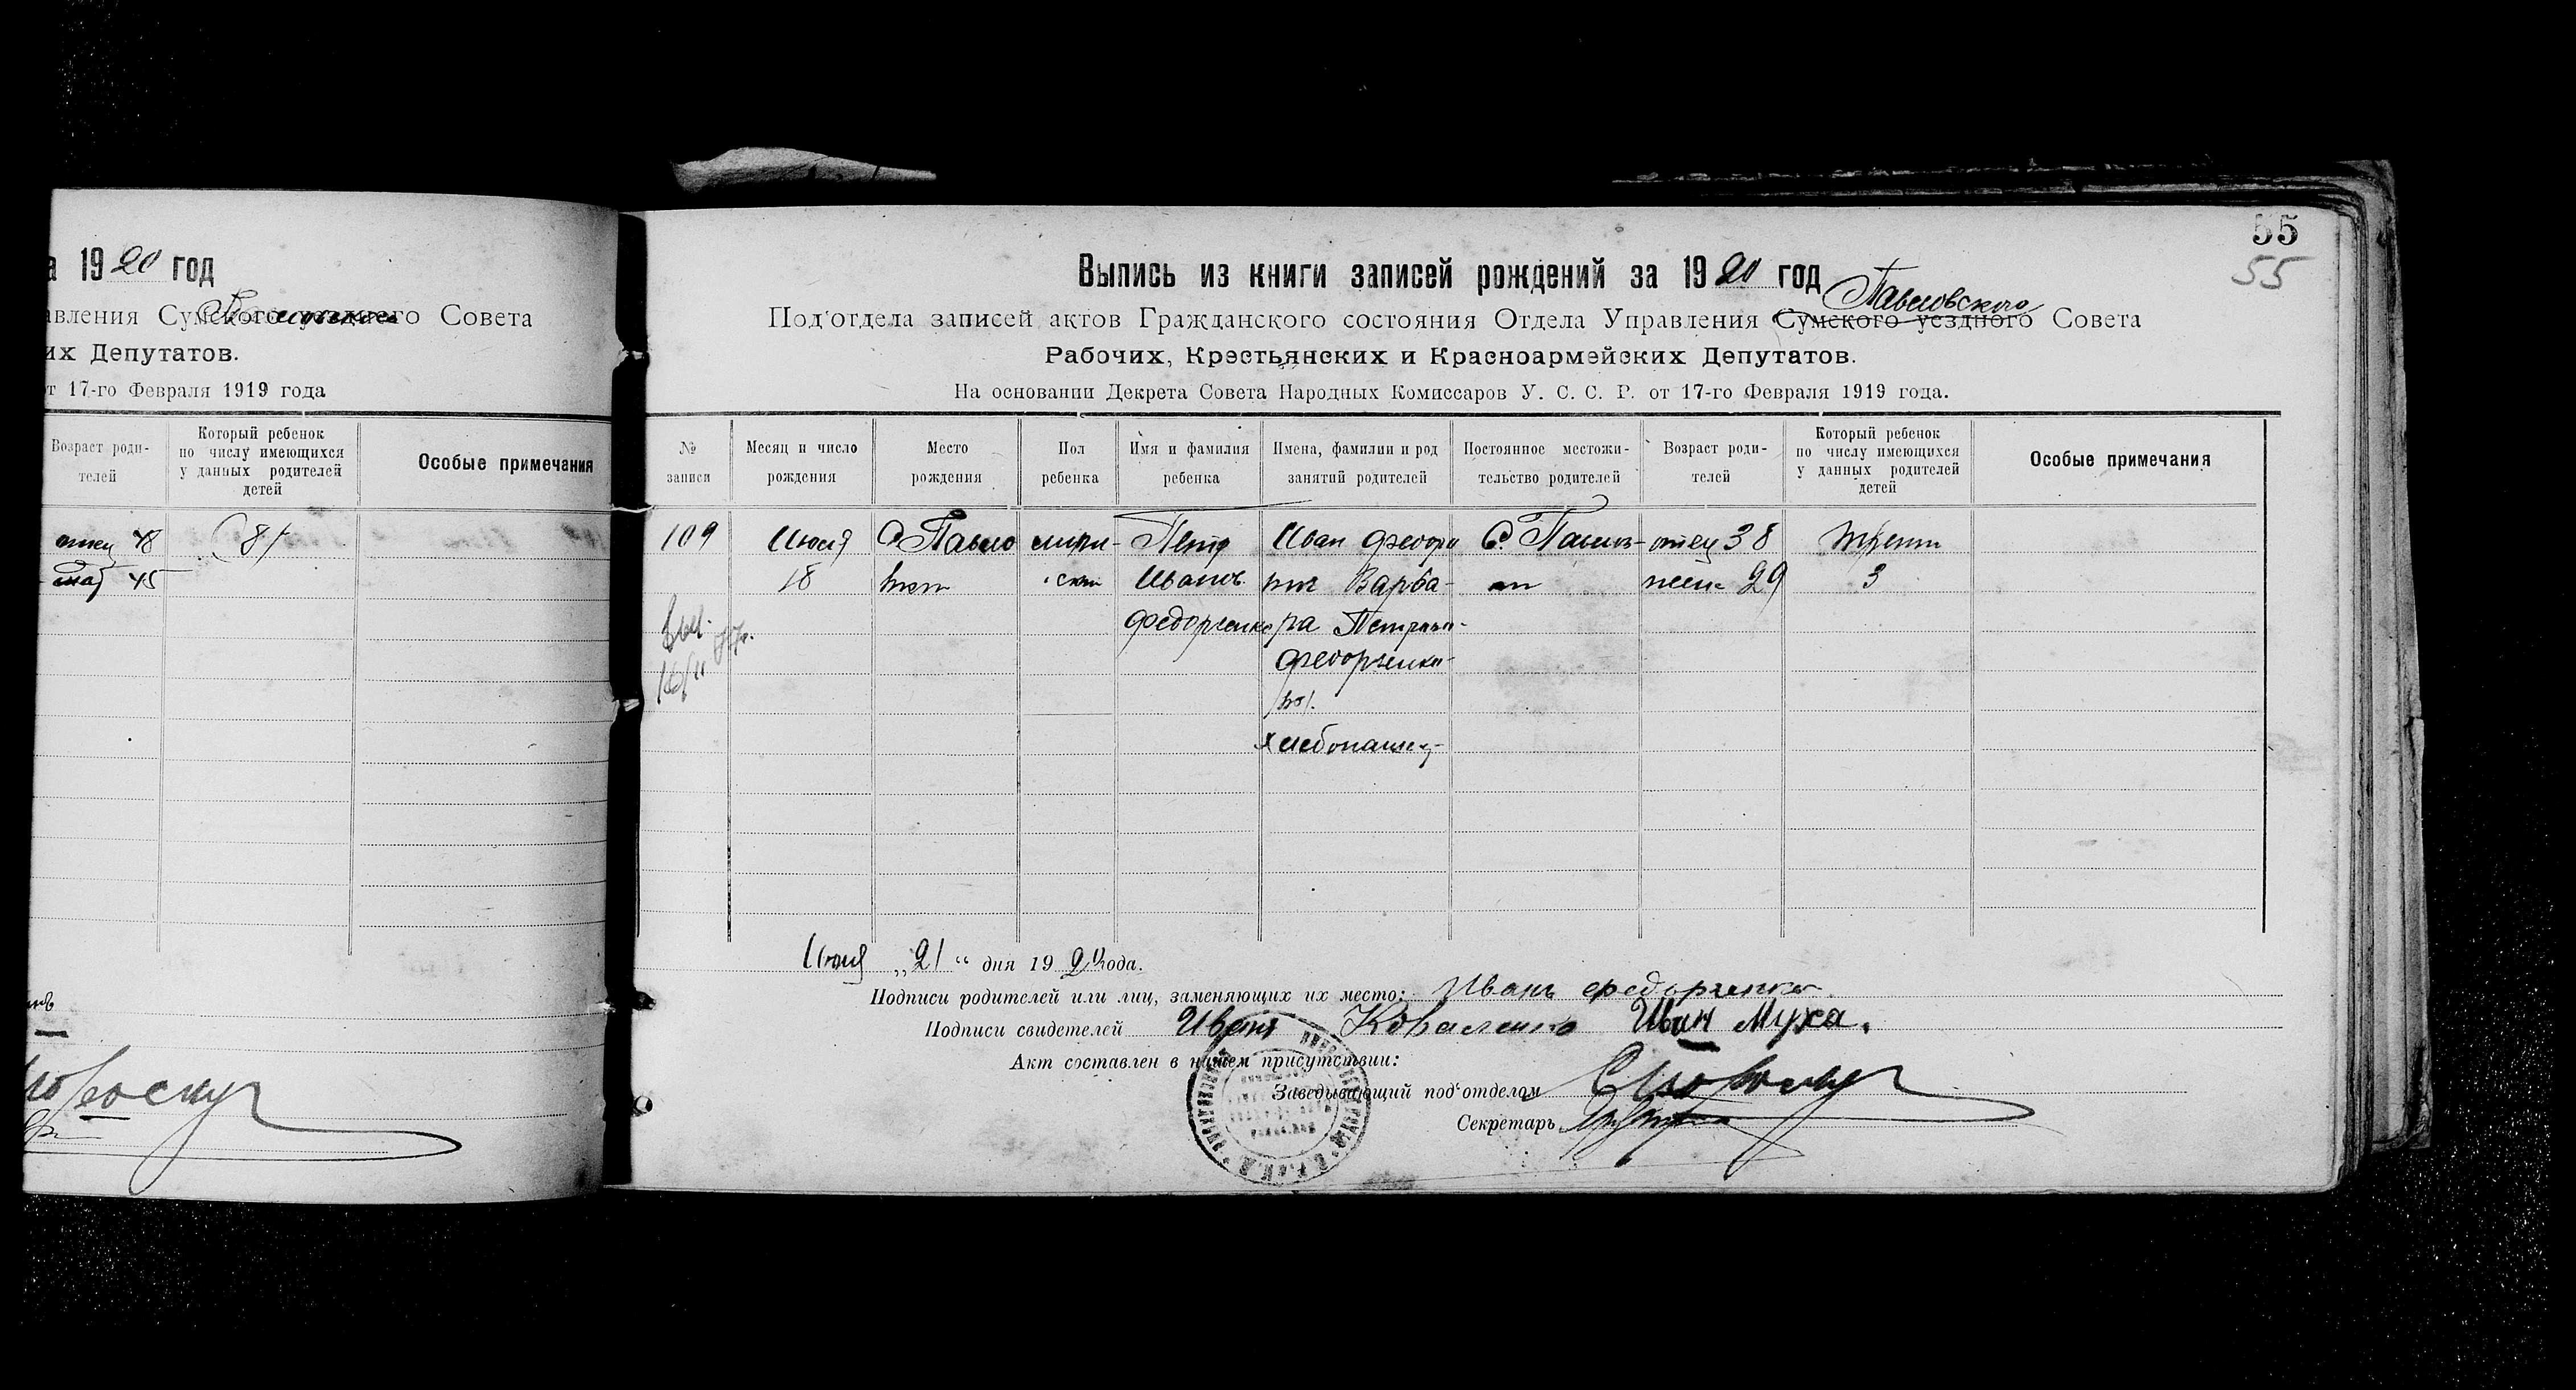 а 1920 год
авления Сумского уездного Совета
их Депутатов.
от 17-го Февраля 1919 года
Возраст роди-
телей
Который ребенок
по числу имеющихся
у данных родителей
детей
Особые примечания
отец 48
8
мат 45
55
55
Выпись из книги записей рождений за 1920 год
Павловского
Под'отдела записей актов Гражданского состояния Отдела Управления Сумского уездного Совета
Рабочих, Крестьянских и Красноармейских Депутатов.
На основании Декрета Совета Народных Комиссаров У. С. С. Р. от 17-го Февраля 1919 года.
№
записи
Месяц и число
рождения
Место
рождения
Пол
ребенка
Имя и фамилия
ребенка
Имена, фамилии и род
занятий родителей
Постоянное местожи-
тельство родителей
Возраст роди-
телей
Который ребенок
по числу имеющихся
у данных родителей
детей
Особые примечания
109
Июля
18
С Павло
мужс-
Петр
Иванов
Федорченко
Иван Федоро
Варба-
ра Петровн-
Федорченко-
вы.
Хлебопашец
С. Павлов-
отец 38
29
3
Июля „21“ дня 1920 года.
Подписи родителей или лиц, заменяющих их место: Иванъ Федорченко
Подписи свидетелей Иван Коваленко Иван Муха.
Акт составлен в нашем присутствии:
Заведывающий под'отделом
Секретарь